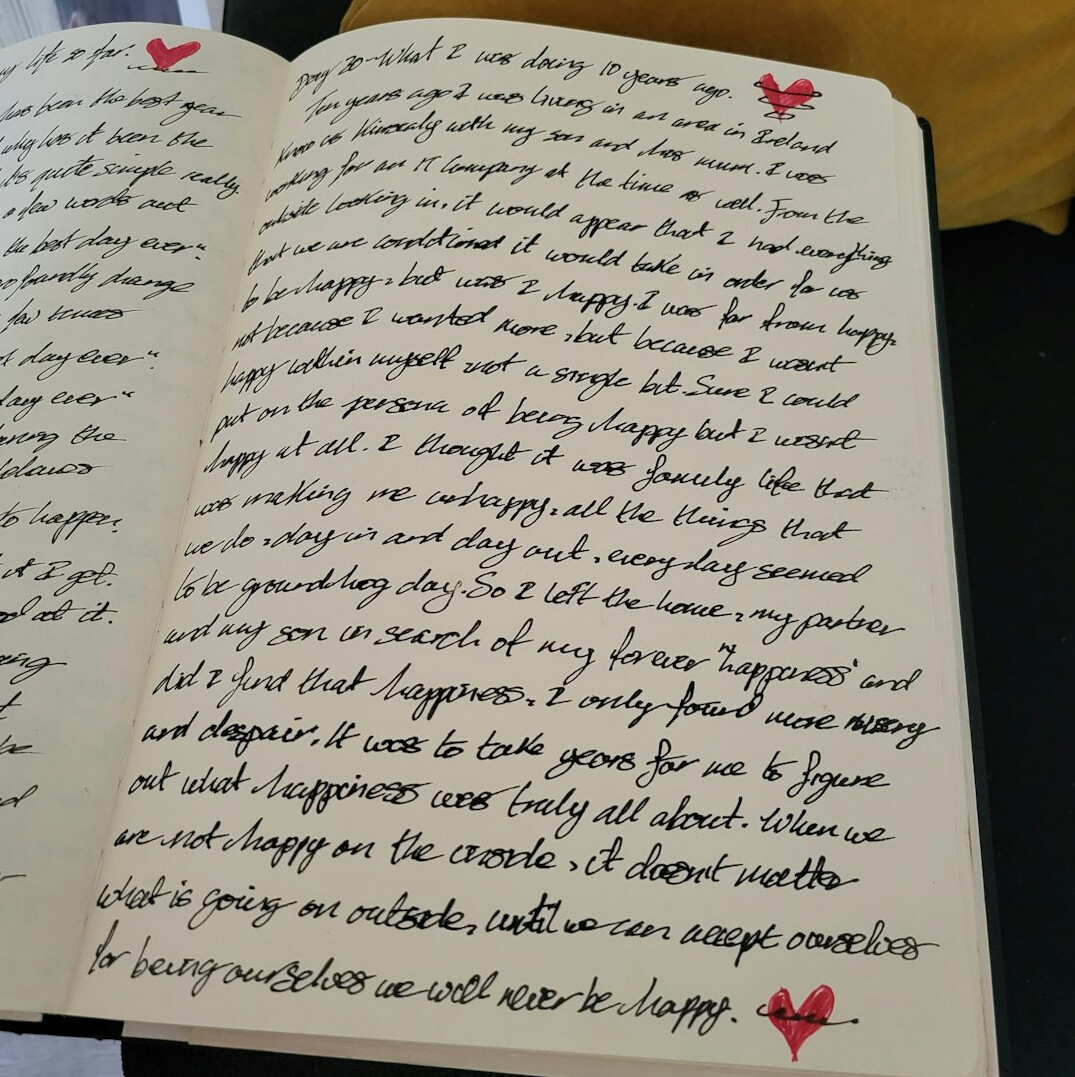 life so far.
has been the best year
why has it been the
It's quite simple really
a few words out
the best day ever"
change
few times
day ever".
day ever"
the
to happen.
it I get.
at it.
Day 20-What I was doing 10 years ago.
Ten years ago I was living in an area in Ireland
know as with my son and his mum. I was
working for an IT Company at the time as well. From the
outside looking in, it would appear that I had everything
that we are conditioned it would take in order for us
to be happy, but was I happy. I was far from happy,
not because I wanted more, but because I wasnt
happy within myself, not a single bit. Sure I could
put on the persona of being happy but I wasnt
happy at all. I thought it was family life that
was making me unhappy, all the things that
we do, day in and day out, every day seemed
to be groundhog day. So I left the home, my partner
and my son in search of my forever "happiness" and
did I find that happiness, I only found more misery
and despair. It was to take years for me to figure
out what happiness was truly all about. When we
are not happy on the inside, it doesnt matter
what is going on outside, until we can accept ourselves
for being ourselves we will never be happy.